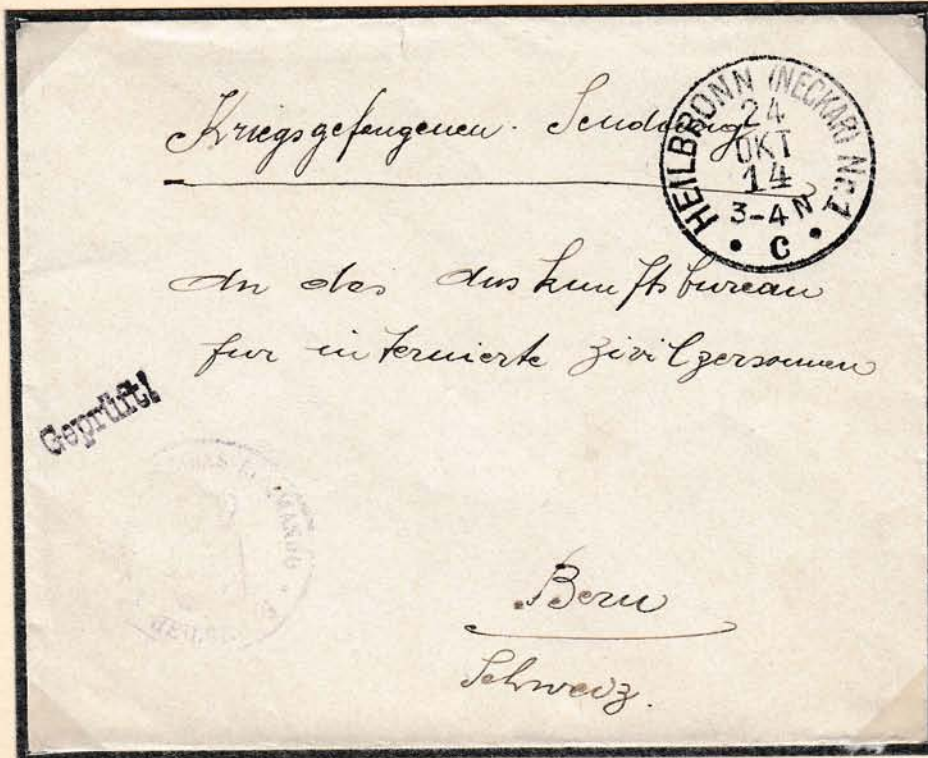 Kriegsgefangenen. Sendung
HEILBRONN (NECKAR) Nr. 1
24
OKT
14
3-4 N
C
An das Auskunftsbureau
fur internierte Zivilpersonen
Geprüft!
Bern
Schweiz.